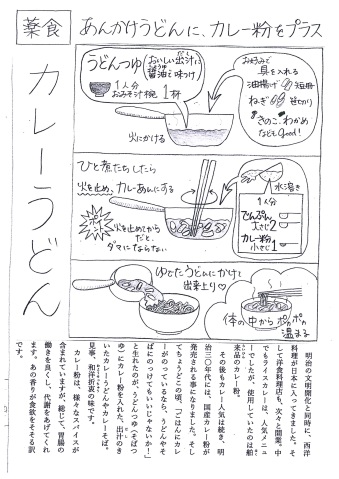 薬食
あんかけうどんに、カレー粉をプラス
カレーうどん
うどんつゆ
おいしい出汁に
醤油で味つけ
1人分
おみそ汁椀 1杯
火にかける
お好みで
具を入れる
油揚げ 短冊
ねぎ 笹切り
きのこ、わかめ
などもGood!
ひと煮たちしたら
火を止め、カレーあんにする
ポイント
火を止めてから
だと、
ダマにならない
水溶き
1人分
でんぷん
大さじ2
カレー粉
小さじ1
ゆでたうどんにかけて
出来上り♡
体の中からポカポカ
温まる
明治の文明開化と同時に、西洋
料理が日本に入ってきました。そ
して洋食料理店も、次々と開業。中
でもライスカレーは、人気メニュ
ーでしたが、使用していたのは舶
来品のカレー粉。
その後もカレー人気は続き、明
治三〇年代には、国産カレー粉が
発売される事になりました。そし
てちょうどこの頃、「ごはんにカレ
ーがのっているなら、うどんやそ
ばにのっけてもいいじゃないか！」
と生れたのが、うどんつゆ・そばつ
ゆにカレー粉を入れた、出汁のき
いたカレーうどんやカレーそば。
見事、和洋折衷の味です。
カレー粉は、様々なスパイスが
含まれていますが、総じて、胃腸の
働きを良くし、代謝をあげてくれ
ます。あの香りが食欲をそそる訳
です。